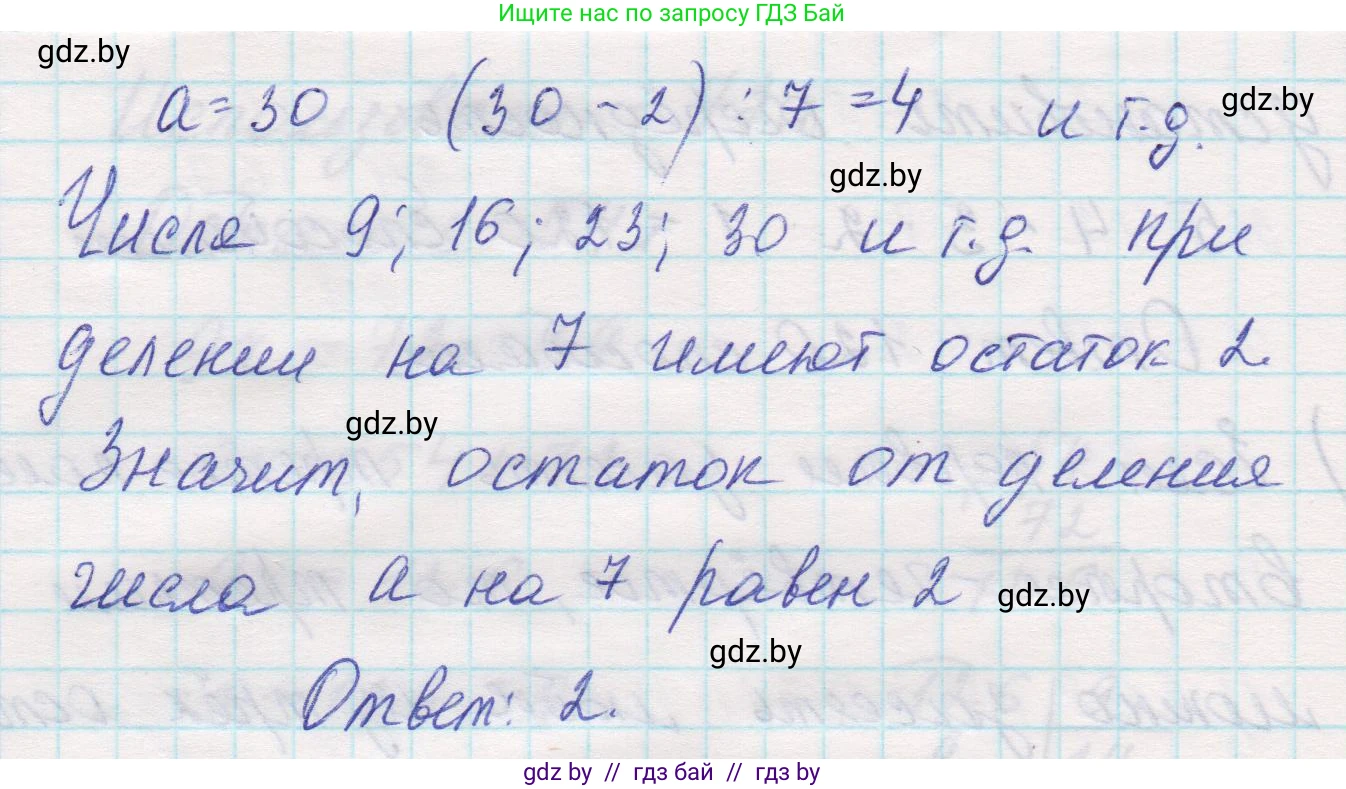 Ищите нас по запросу ГДЗ Бай
gdz.by
a = 30 (30 - 2) : 7 = 4 и т.д.
gdz.by
gdz.by
Числа 9; 16; 23; 30 и т.д. при
делении на 7 имеют остаток 2.
gdz.by
Значит, остаток от деления
числа a на 7 равен 2
gdz.by
gdz.by
Ответ: 2.
gdz by // гдз бай // гдз by